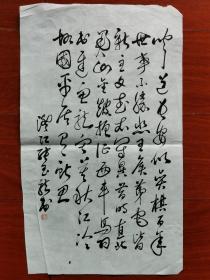 闻道长安似奕棋百年
世事不胜悲王侯第宅皆
新主文武衣冠异昔时直北
关山金鼓振征西车马羽
书迟鱼龙寂寞秋江冷
故国平居有所思